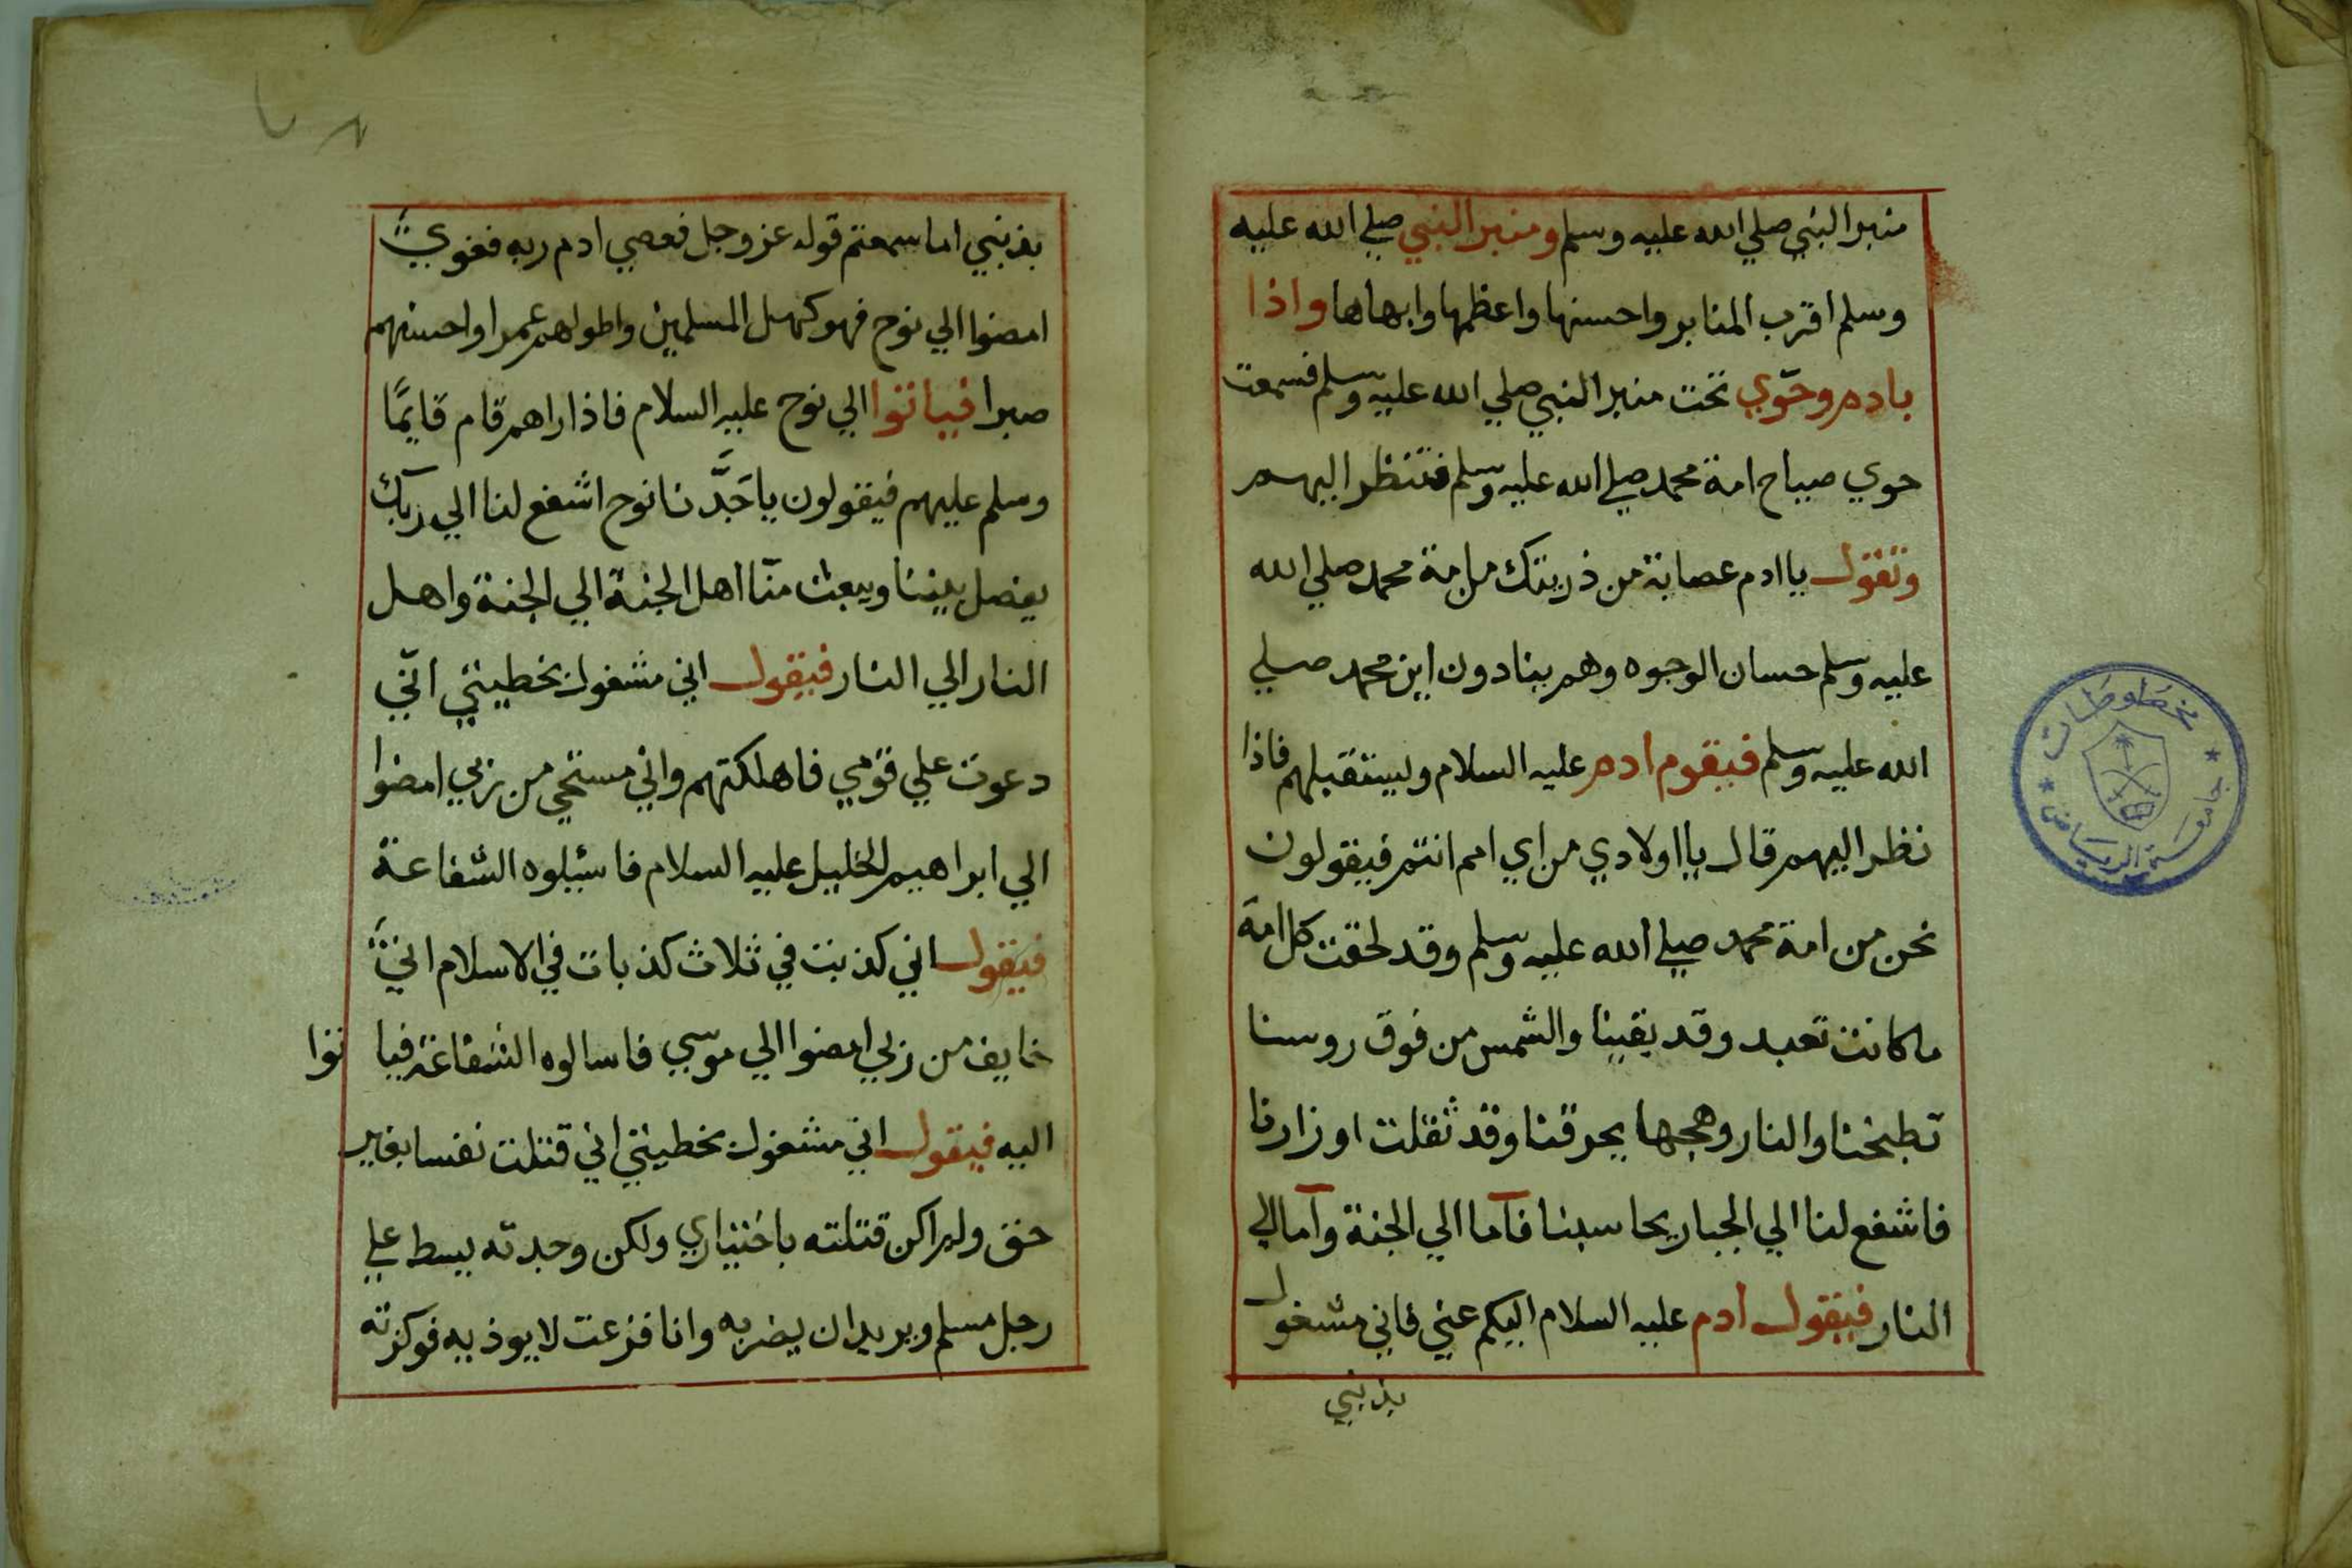 منبر النبي صلي الله عليه وسلم ومنبر النبي صلي الله عليه
وسلم اقرب المنابر واحسنها واعظمها وابهاها واذا
بادم وحوّي تحت منبر النبي صلي الله عليه وسلم فسمعت
حوي صياح امة محمد صلي الله عليه وسلم فتنظر اليهم
وتقول يا ادم عصابة من ذريتك من امة محمد صلي الله
عليه وسلم حسان الوجوه وهم ينادون اين محمد صلي
الله عليه وسلم فيقوم ادم عليه السلام وليستقبلهم فاذا
نظر اليهم قال يا اولادي من اي امم انتم فيقولون
نحن من امة محمد صلي الله عليه وسلم وقد لحقت كل امة
ما كانت تعبد وقد بقينا والشمس من فوق روسنا
تطبخنا والنار وهجها يحرقنا وقد ثقلت اوزارنا
فاشفع لنا الي الجبار يحاسبنا فآما الي الجنة وآما الي
النار فيقول ادم عليه السلام اليكم عني فاني مشغول
بذنبي
بذنبي اما سمعتم قوله عز وجل فعصي ادم ربه فغوي
امضوا الي نوح فهو كهل المسلمين واطولهم عمرا واحسنهم
صبرا فياتوا الي نوح عليه السلام فاذا راهم قام قايمًا
وسلم عليهم فيقولون يا جَدَّنا نوح اشفع لنا الي ربك
يفصل بيننا ويبعث منّا اهل الجنة الي الجنة واهل
النار الي النار فيقول اني مشغول بخطيئتي انّي
دعوت علي قومي فاهلكتهم واني مستحي من ربي امضوا
الي ابراهيم الخليل عليه السلام فاسئلوه الشفاعة
فيقول اني كذبت في ثلاث كذبات في الاسلام اني
خايف من ربي امضوا الي موسي فاسالوه الشفاعة فياتوا
اليه فيقول اني مشغول بخطيئتي اني قتلت نفسا بغير
حق ولم اكن قتلته باختياري ولكن وجدته يبسط علي
رجل مسلم ويريد ان يضربه وانا فزعت لا يوذيه فوكزته
مخطوطات
جامعة الرياض